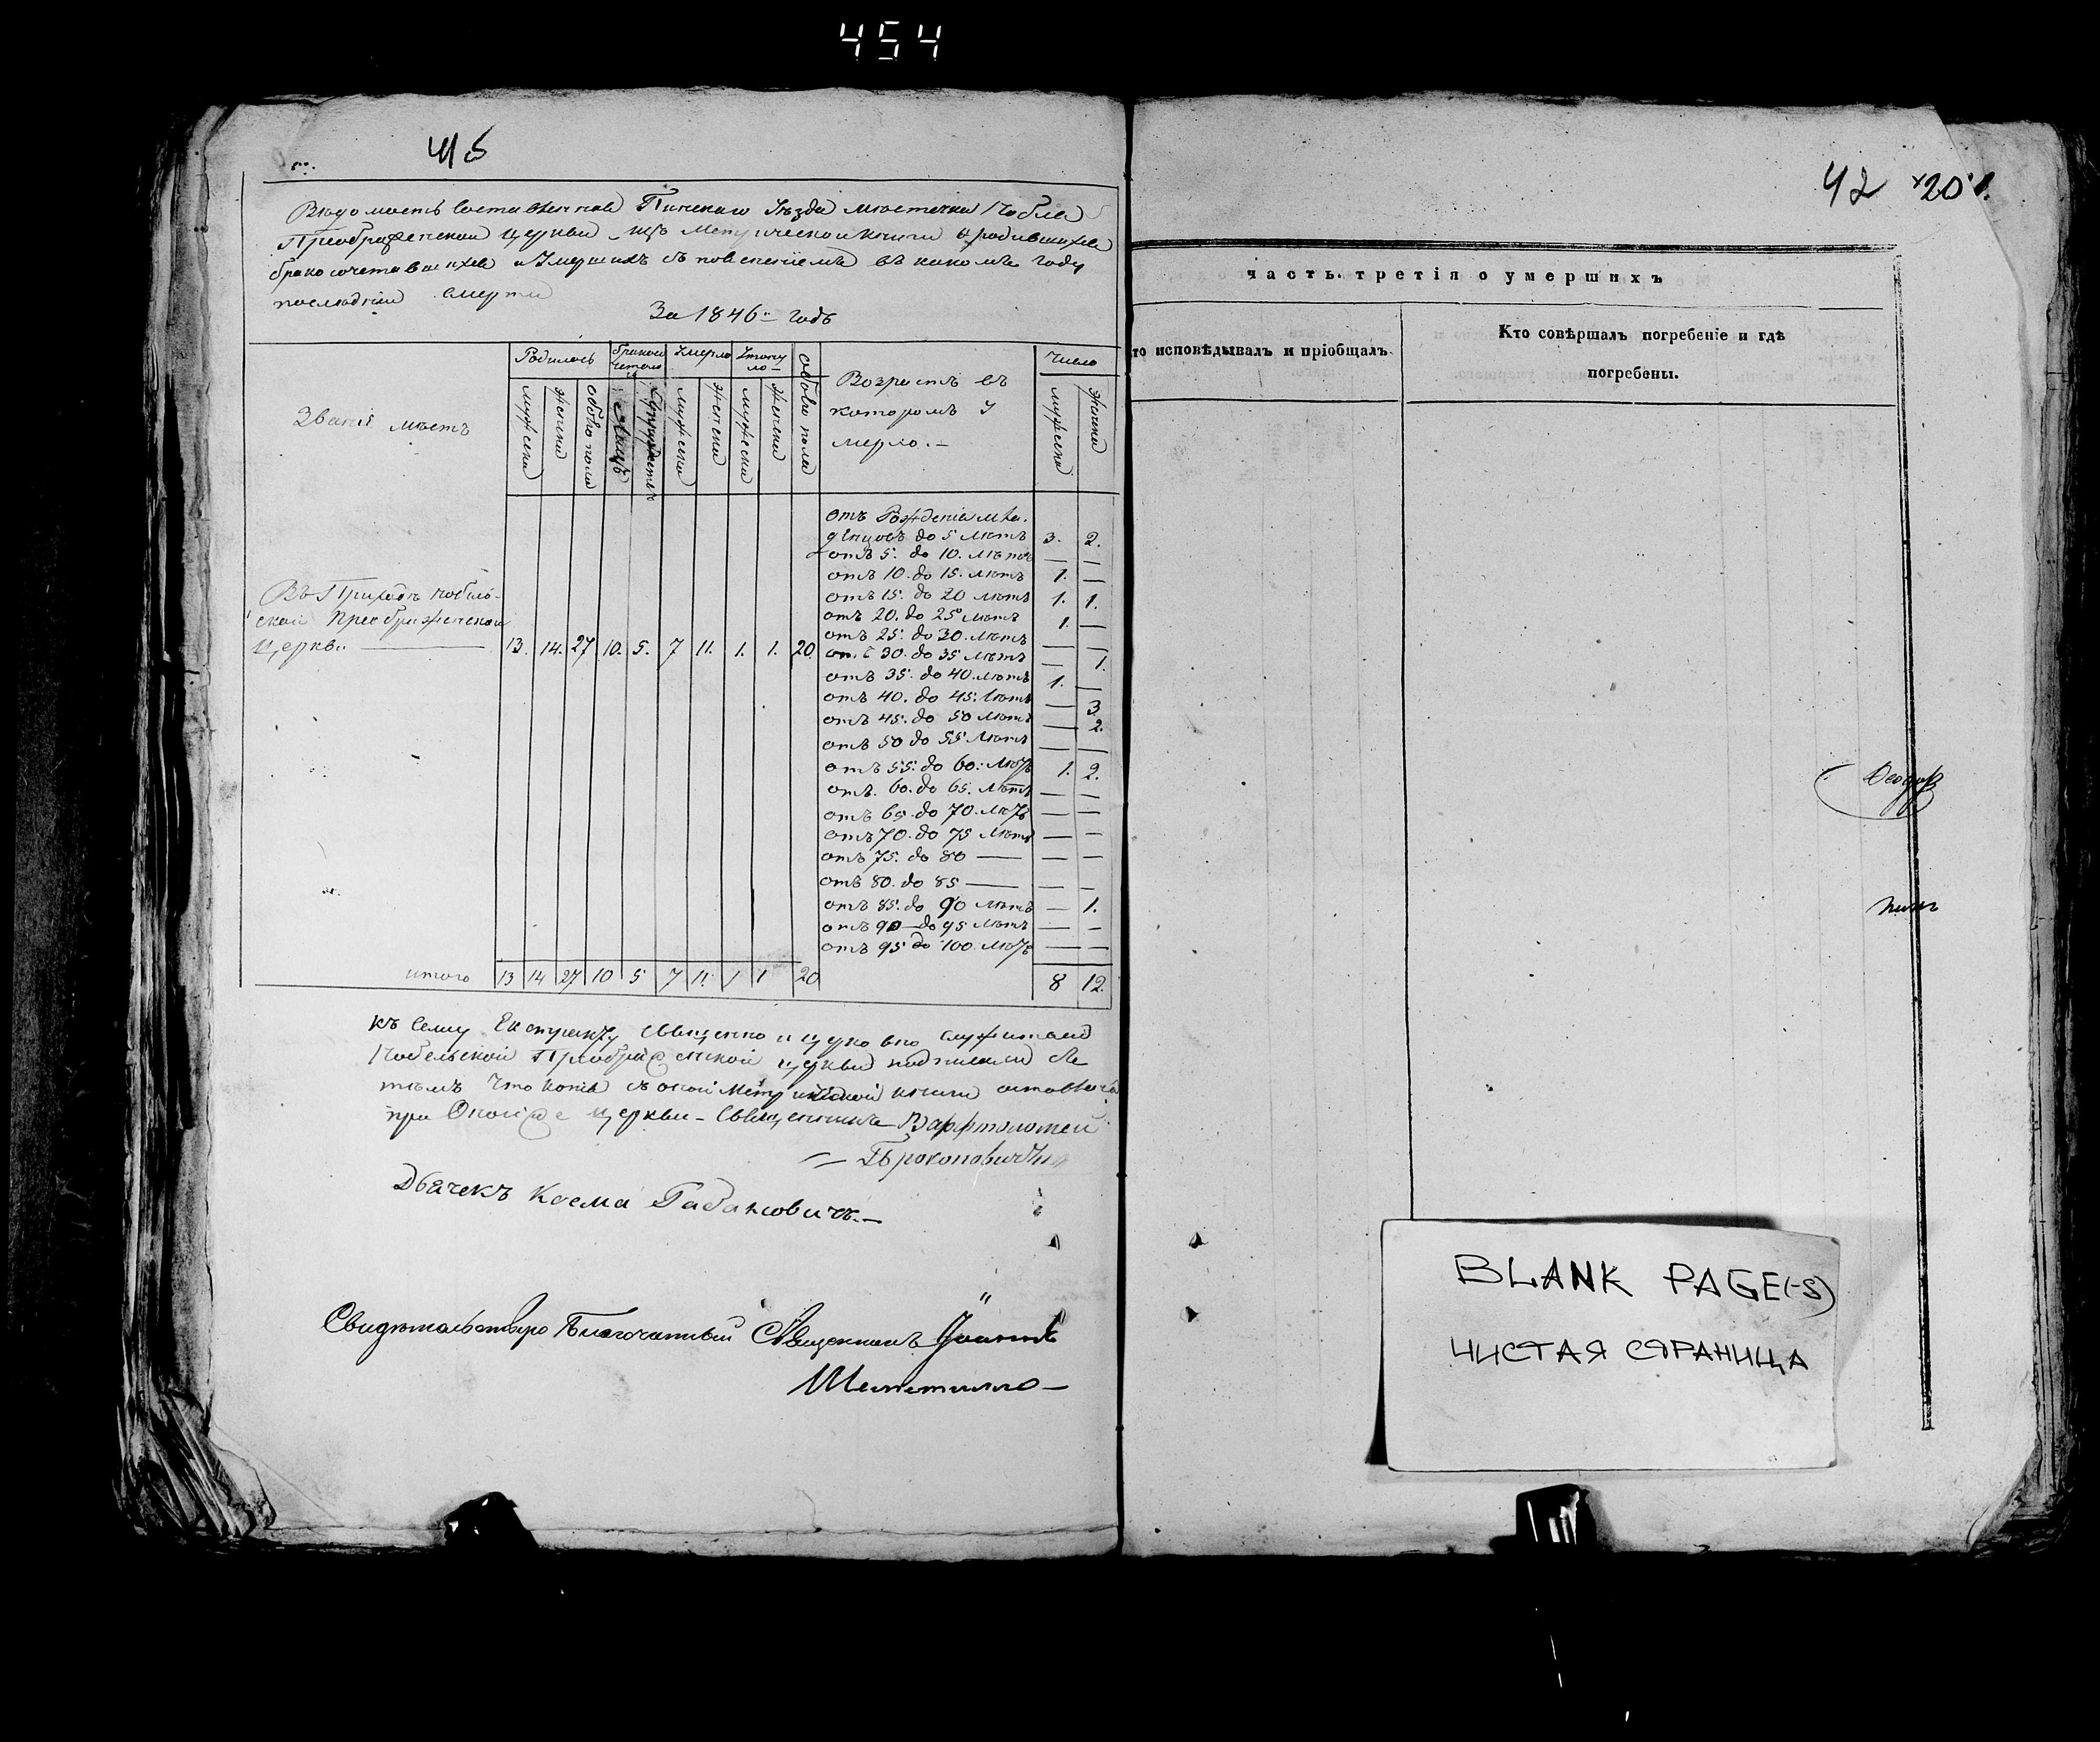 454
Вѣдомость Составленная Пинскаго Уѣзда мѣстечка Нобля
Преображенской церкви изъ Метрической книги о родившихся
бракосочетавшихся и Умершихъ съ поясненіемъ въ какомъ году
послѣдній смерти
За 1846 годъ
Званіе мѣстъ
Родилось
Умерло
Утонуло
Возрастъ въ
которомъ У
мерло.—
Число
мужеска
женска
обоего пола
мужеска
женска
мужеска
женска
обоего пола
мужеска
женска
отъ Рожденія мла.
денцовъ до 5 лѣтъ 3. 2.
отъ 5. до 10. лѣтъ — —
отъ 10. до 15. лѣтъ 1. —
отъ 15. до 20 лѣтъ 1. 1.
отъ 20. до 25 лѣтъ 1. —
отъ 25. до 30. лѣтъ — —
отъ 30. до 35 лѣтъ — 1.
отъ 35. до 40. лѣтъ 1. —
отъ 40. до 45. лѣтъ — 3.
отъ 45. до 50 лѣтъ — 2.
отъ 50 до 55 лѣтъ — —
отъ 55. до 60. лѣтъ 1. 2.
отъ 60. до 65. лѣтъ — —
отъ 65. до 70. лѣтъ — —
отъ 70. до 75 лѣтъ — —
отъ 75. до 80 — — —
отъ 80. до 85 — — —
отъ 85. до 90 лѣтъ — 1.
отъ 90 — до 95 лѣтъ — —
отъ 95 до 100. лѣтъ — —
Въ Приходѣ Нобиль-
ской Преображенской
Церкви — 13. 14. 27 10. 5. 7 11. 1. 1. 20
итого 13 14 27 10 5 7 11. 1 1 20 8 12.
Къ сему Екстракту священно и церковно служители
Нобельской Преображенской церкви подписали съ
тѣмъ что копія съ оной Метрической книги оставлена
при Оной же церкви — Священникъ Варфоломей
Прокоповичъ
Дьячекъ Косма
Свидѣтельствую Благочинный Священникъ Іоаннъ
42 201.
часть третія о умершихъ
то исповѣдывалъ и пріобщалъ.
Кто совѣршалъ погребеніе и гдѣ
погребены.
Ѳеодоръ
BLANK PAGE(-S)
ЧИСТАЯ СТРАНИЦА